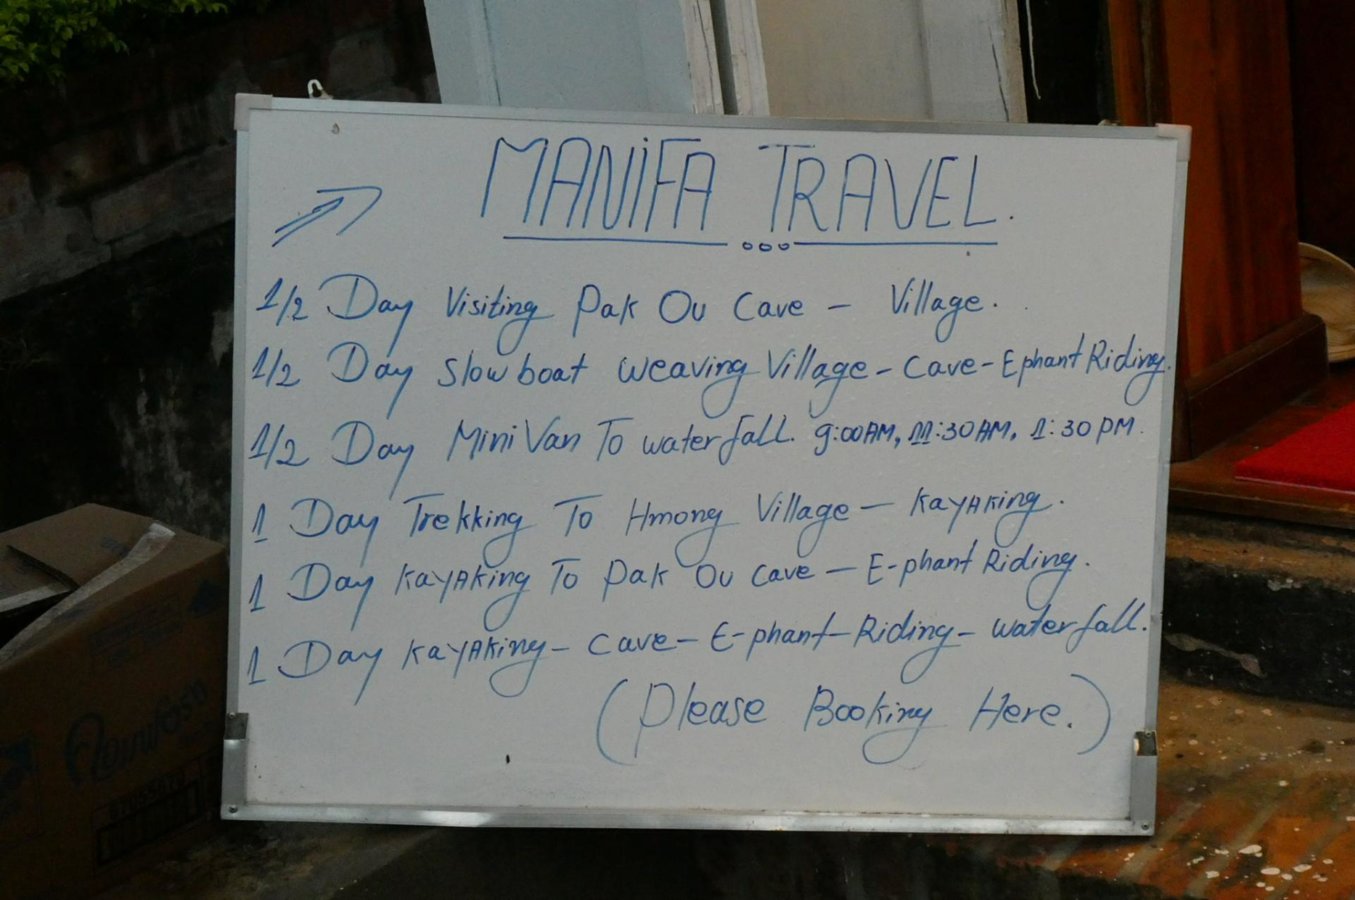 MANiFA TRAVEL.
1/2 Day Visiting Pak Ou Cave - Village.
1/2 Day Slow boat weaving Village - Cave - Ephant Riding.
1/2 Day Mini Van To waterfall. 9:00AM, 11:30AM, 1:30PM.
1 Day Trekking To Hmong Village - Kayaking.
1 Day Kayaking To Pak Ou Cave - E-phant Riding.
1 Day Kayaking - Cave - E-phant - Riding - waterfall.
(Please Booking Here.)